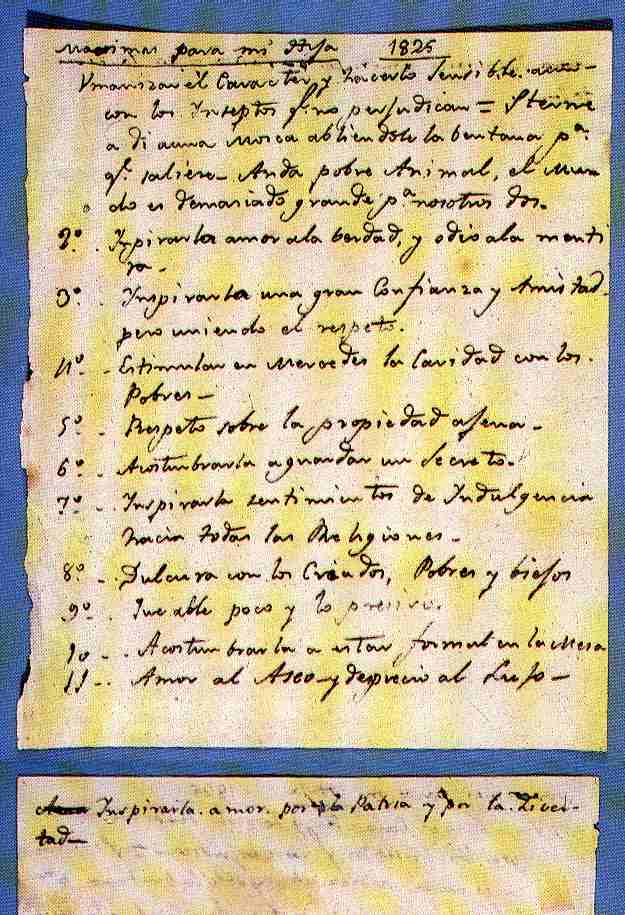 Macsimas para mi Hija 1825
Vmanizar el Caracter y hacerlo sensible aun
con los Insectos q.e no perjudican = Sterne
a di auna Mosca abliendole la bentana p.a
q.e saliese. Anda pobre Animal, el Mun
do es demasiado grande p.a nosotros dos.
2º - Inspirarla amor ala berdad, y odio ala menti
ra.
3º - Inspirarla una gran Confianza y Amistad
pero uniendo el respeto.
4º - Estimular en Mercedes la Caridad con los
Pobres -
5º - Respeto sobre la propiedad ajena -
6º - Acostumbrarla aguardar un Secreto.
7º - Inspirarla sentimientos de Indulgencia
hacia todas las Religiones -
8º - Dulsura con los Criados, Pobres y biejos
9º . Que able poco y lo presiso.
10 - Acostumbrarla a estar formal en la Mesa
11 - Amor al Aseo y desprecio al Lujo -
Inspirarla amor por la Patria y por la Liver-
tad -